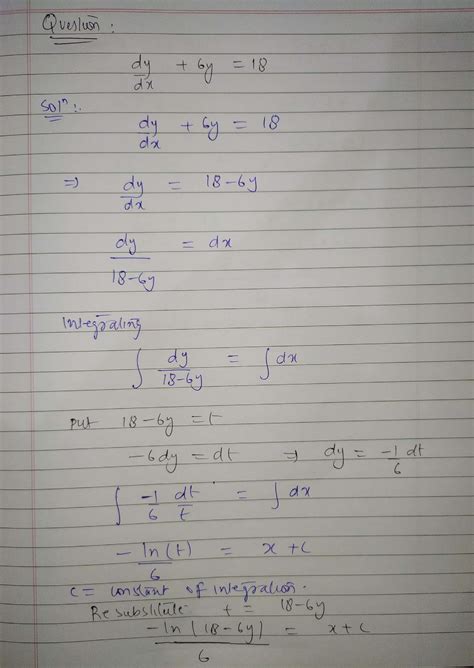 Question :
dy/dx + 6y = 18
Solⁿ :.
dy/dx + 6y = 18
⇒ dy/dx = 18-6y
dy/18-6y = dx
Integrating
∫ dy/18-6y = ∫ dx
Put 18-6y = t
-6dy = dt ⇒ dy = -1/6 dt
∫ -1/6 dt/t = ∫ dx
-ln(t)/6 = x+c
c = constant of integration.
Resubstitute t = 18-6y
-ln(18-6y)/6 = x+c